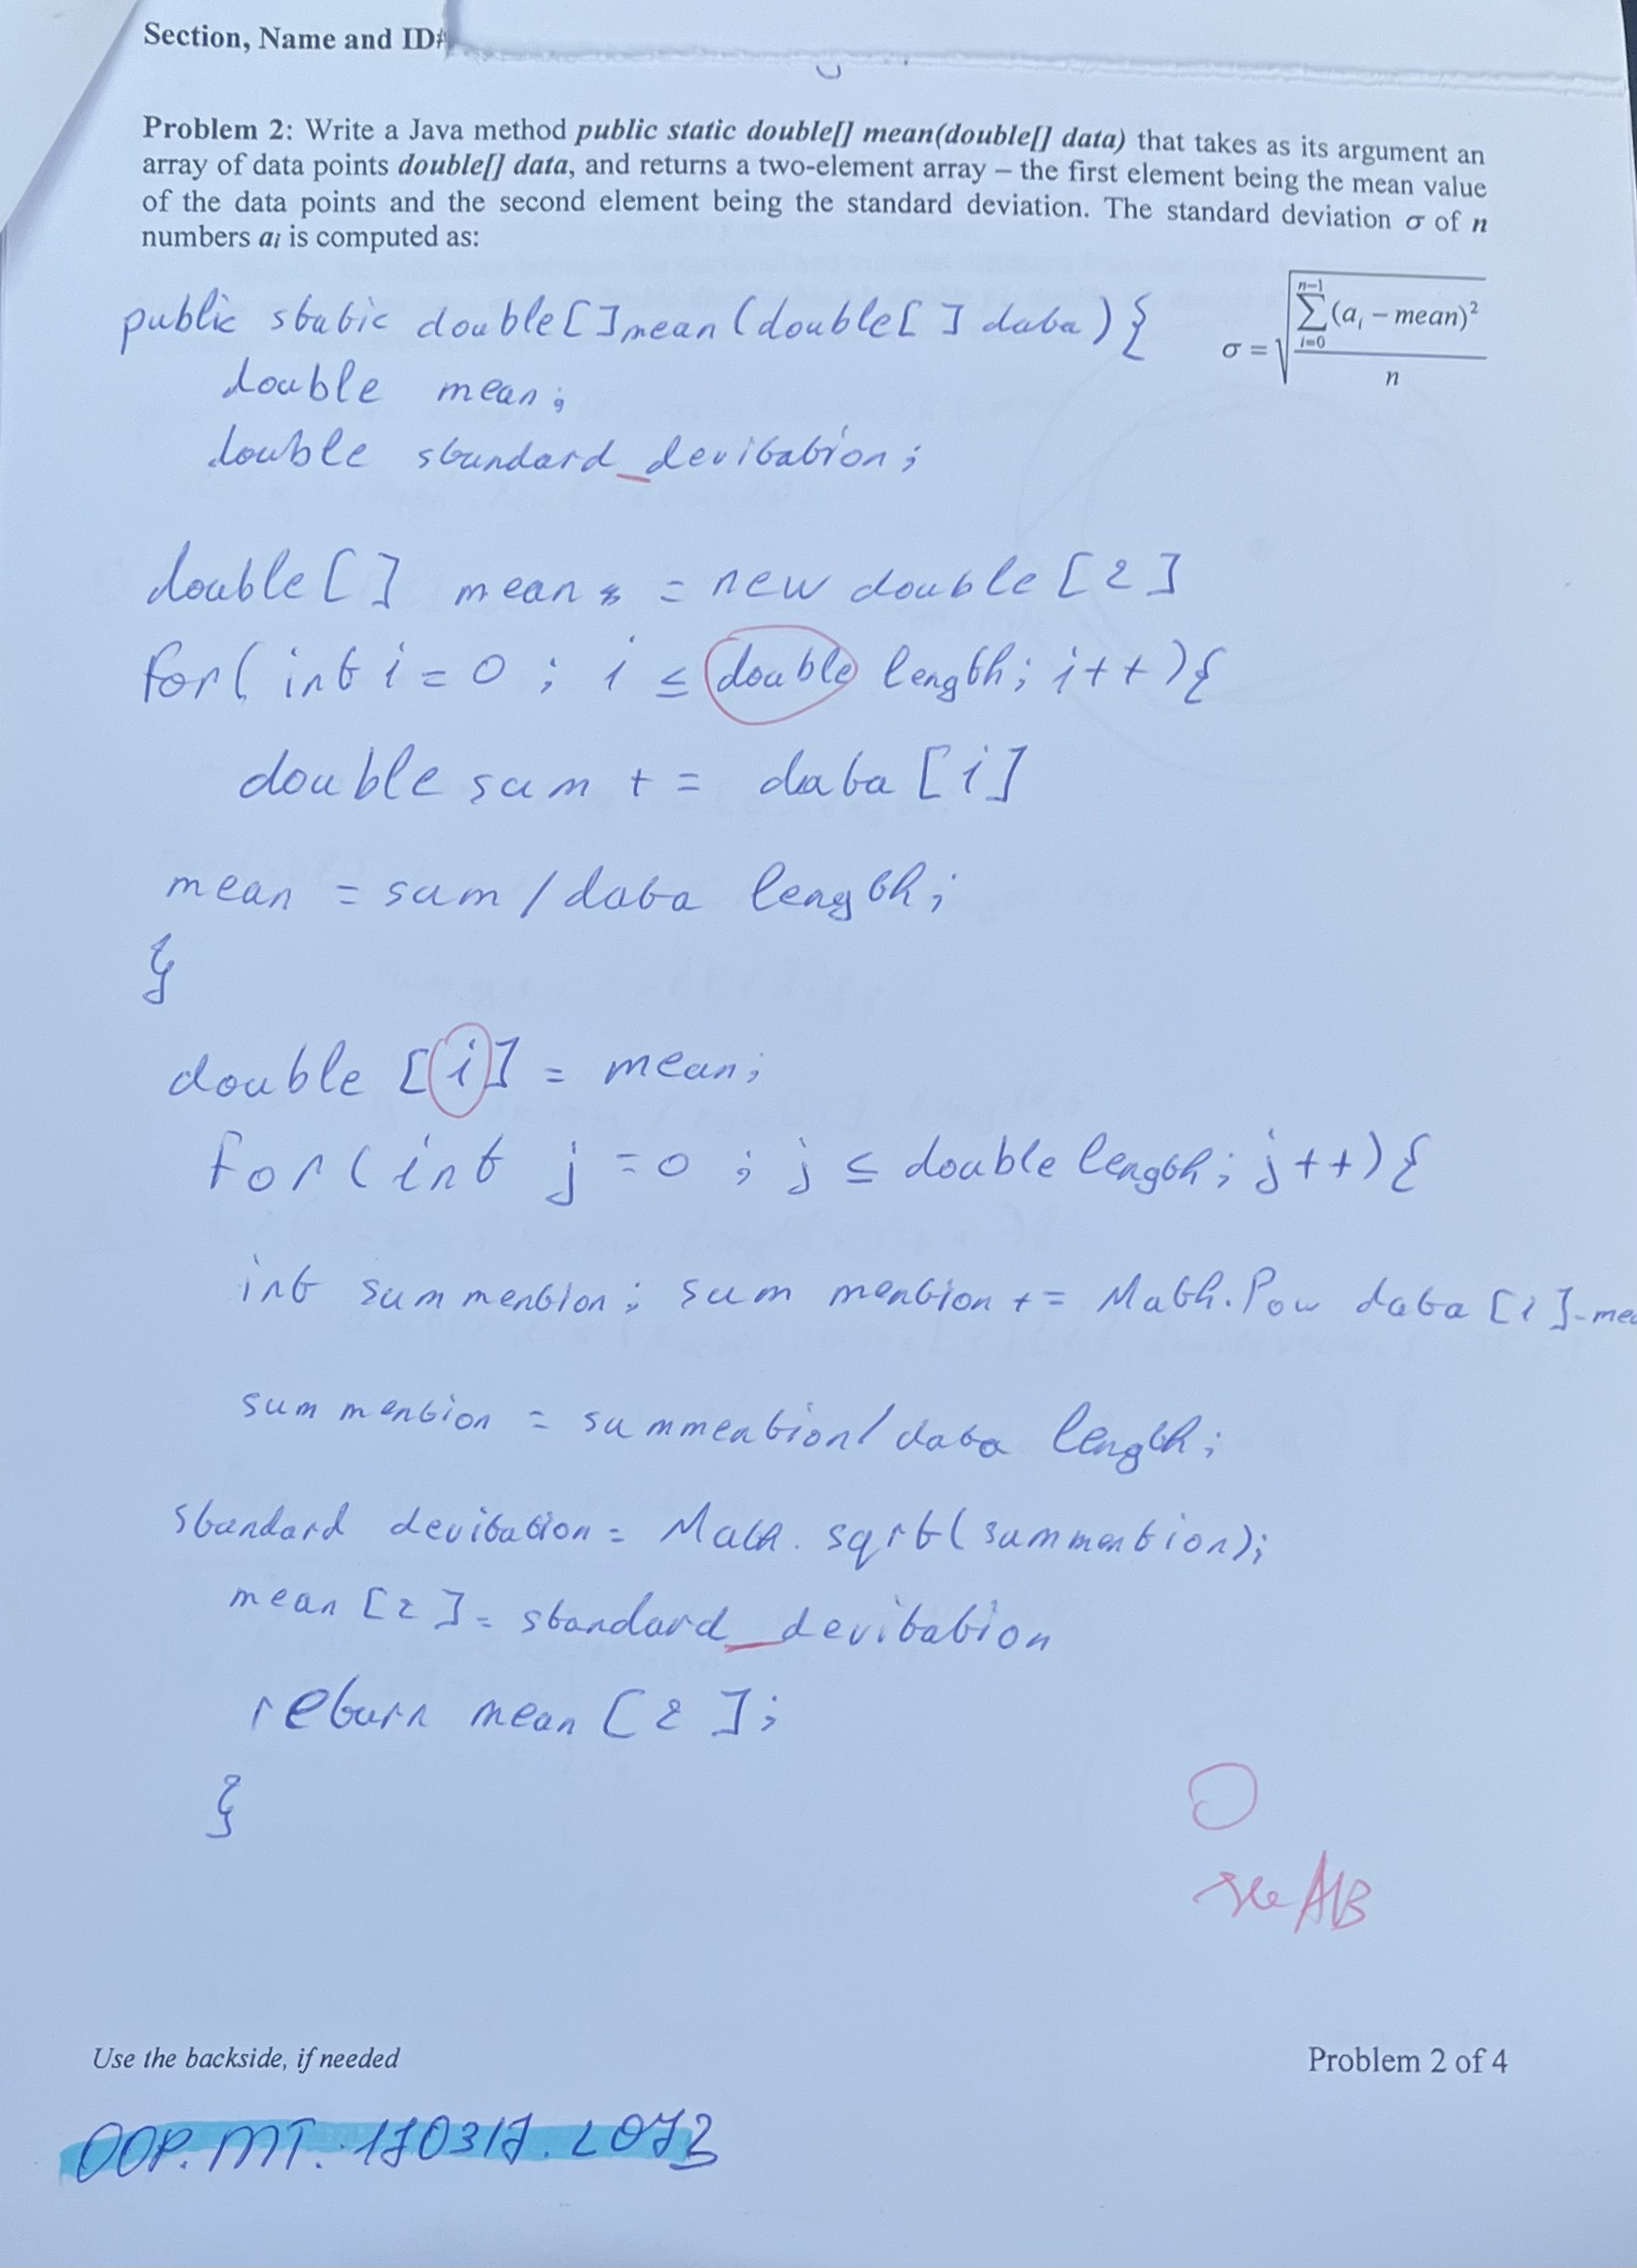 Section, Name and ID#
Problem 2: Write a Java method public static double[] mean(double[] data) that takes as its argument an
array of data points double[] data, and returns a two-element array – the first element being the mean value
of the data points and the second element being the standard deviation. The standard deviation σ of n
numbers ai is computed as:
σ = √(∑_{i=0}^{n-1}(a_i – mean)² / n)
public static double[] mean(double[] data){
double mean;
double standard_devitation;
double[] means = new double[2]
for(int i = 0 ; i ≤ double length; i++){
double sum += data[i]
mean = sum / data length;
}
double [i] = mean;
for(int j = 0 ; j ≤ double length; j++){
int summention; sum mention += Math.Pow data [i]-mea
sum mention = summention/data length;
standard devitation = Math. sqrt(summention);
mean [2] = standard_devitation
return mean [2];
}
0
see AB
Use the backside, if needed
Problem 2 of 4
OOP.MT.170317.2072